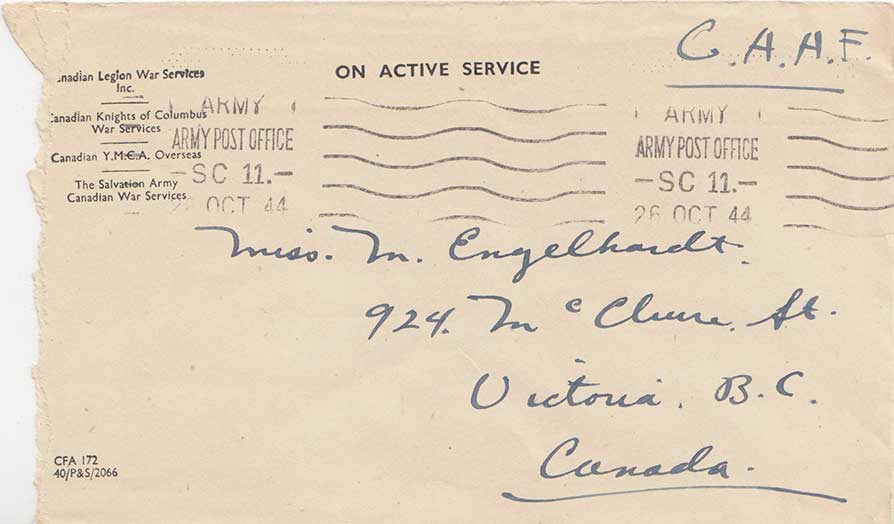 C.A.A.F.
ON ACTIVE SERVICE
nadian Legion War Services
Inc.
anadian Knights of Columbus
War Services
Canadian Y.M.C.A. Overseas
The Salvation Army
Canadian War Services
ARMY
ARMY POST OFFICE
-SC 11.-
26 OCT 44
ARMY
ARMY POST OFFICE
-SC 11.-
26 OCT 44
Miss. M. Engelhardt.
924. Mc Clure. St.
Victoria. B.C.
Canada.
CFA 172
40/P&S/2066